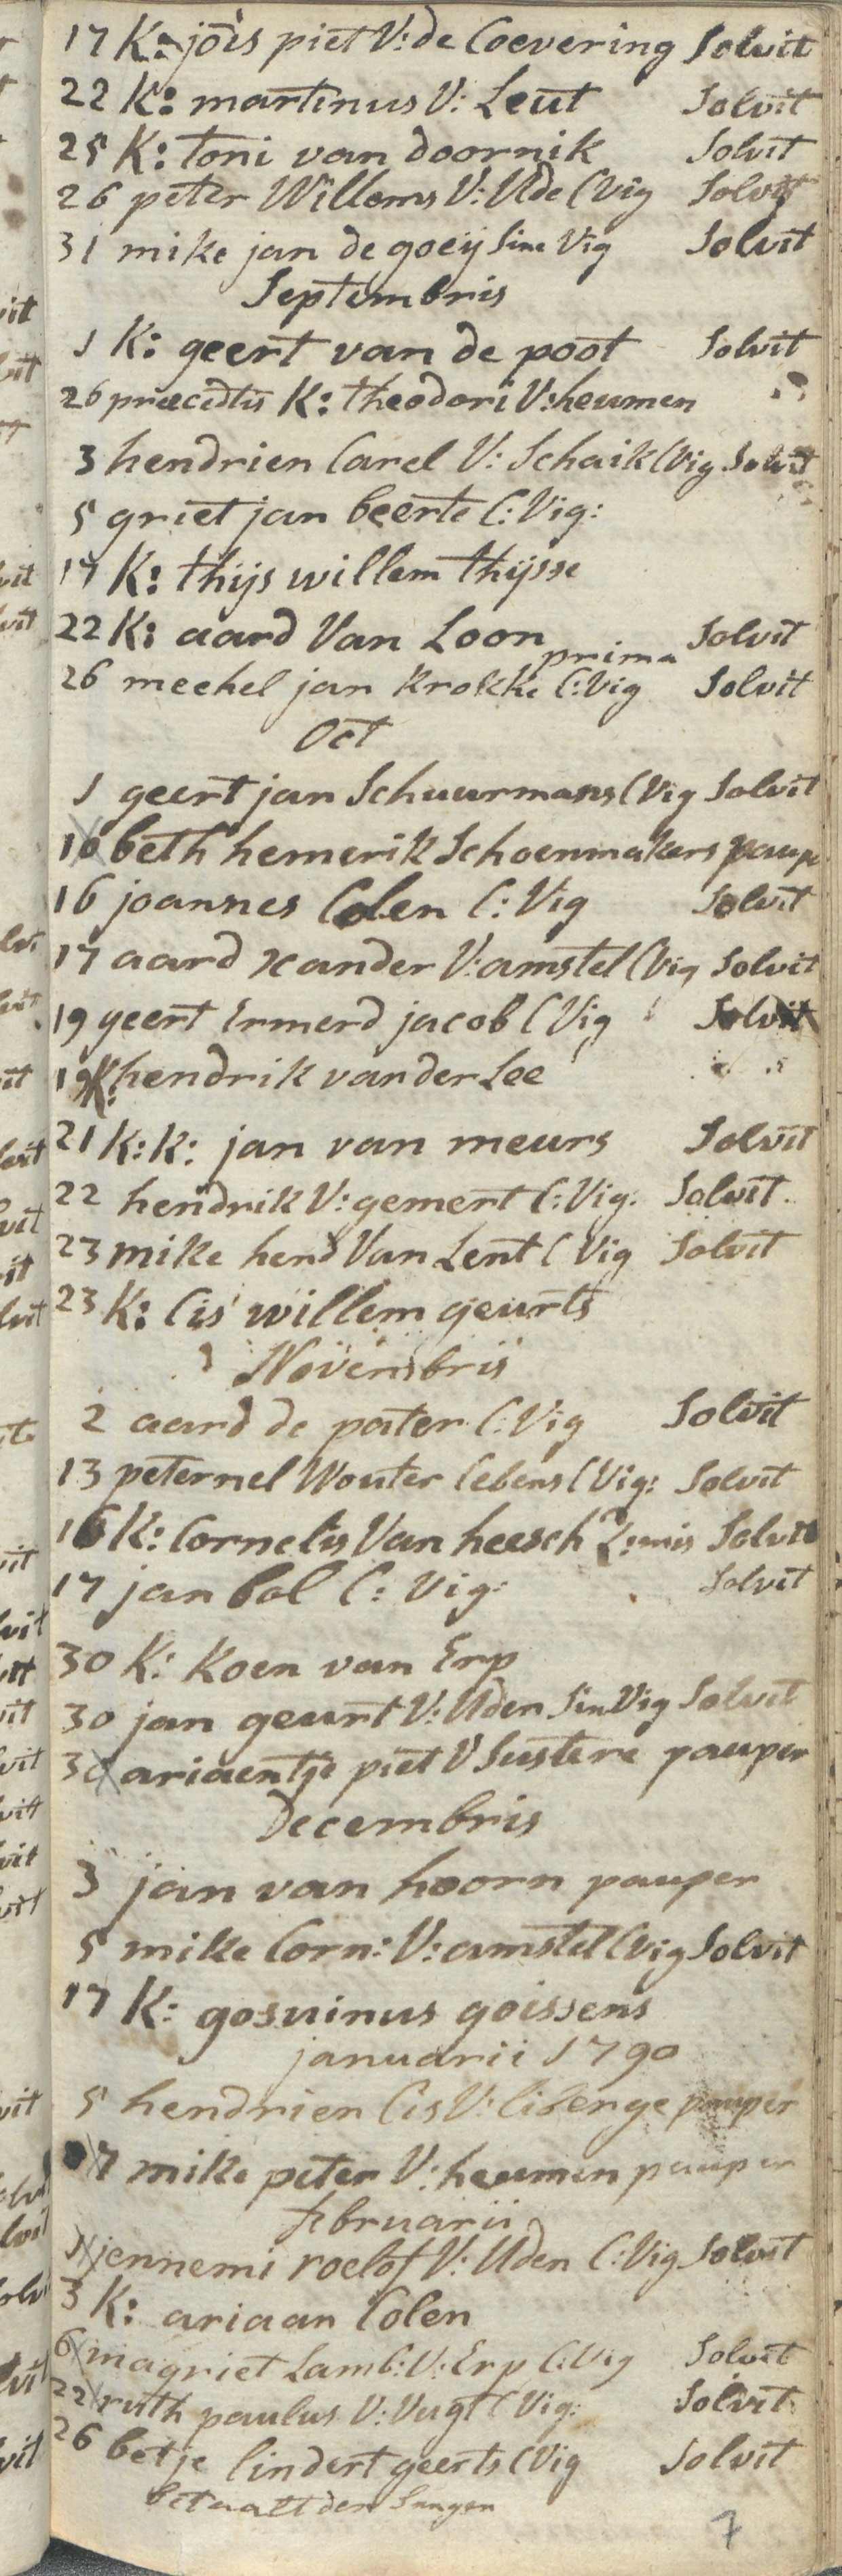 17 K: jois piet V: de Coevering Solvit
22 K: martinus V: Leut Solvit
25 K: toni van doornik Solvit
26 peter Willems V: Ude C Vig Solvit
31 mike jan de goeij Sine Vig Solvit
Septembris
1 K: geert van de poot Solvit
26 præcedtis K: theodori V: heumen
3 hendrien Carel V: Schaik C Vig Solvit
5 griet jan beerte C: Vig:
17 K: thijs willem thijsse
22 K: aard Van Loon Solvit
prima
26 mechel jan krokke C: Vig Solvit
Oct
1 geert jan Schuurmans C Vig Solvit
10 beth hemerik Schoenmakers paup
16 joannes Colen C: Vig Solvit
17 aard xander V: amstel C Vig Solvit
19 geert Ermerd jacob C Vig Solvit
19 K: hendrik van der Lee
21 K: K: jan van meurs Solvit
22 hendrik V: gemert C: Vig. Solvit
23 mike hend Van Lent C Vig Solvit
23 K: Cis willem geurts
Novembris
2 aard de pater C: Vig Solvit
13 peternel Wouter Cebens C Vig: Solvit
16 K: Cornelis Van heesch 2: mis Solvit
17 jan bol C: Vig: Solvit
30 K: Koen van Erp
30 jan geurt V: Uden Sin Vig Solvit
30 ariaentje piet V Sustere pauper
Decembris
3 jan van hoorn pauper
5 mike Corn: V: amstel C Vig Solvit
17 K: gosuinus goissens
januarii 1790
5 hendrien Cis V: libenge pauper
7 mike peter V: heumen pauper
februarii
1 jennemi roelof V: Uden C: Vig Solvit
3 K: ariaan Colen
6 magriet Lamb: V: Erp C: Vig Solvit
22 ruth paulus V: Vugt C Vig: Solvit
26 betje lindert geerts C Vig Solvit
betaalt den Sangen
7